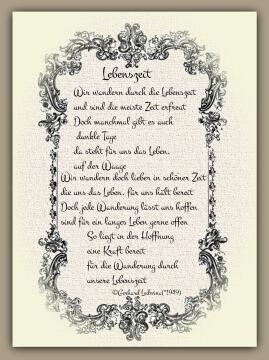 Lebenszeit
Wir wandern durch die Lebenszeit
und sind die meiste Zeit erfreut
Doch manchmal gibt es auch
dunkle Tage
da steht für uns das Leben,
auf der Waage
Wir wandern doch lieber in schöner Zeit
die uns das Leben, für uns hält bereit
Doch jede Wanderung lässt uns hoffen
sind für ein langes Leben gerne offen
So liegt in der Hoffnung
eine Kraft bereit
für die Wanderung durch
unsere Lebenszeit
©Gerhard Ledwina(*1949)